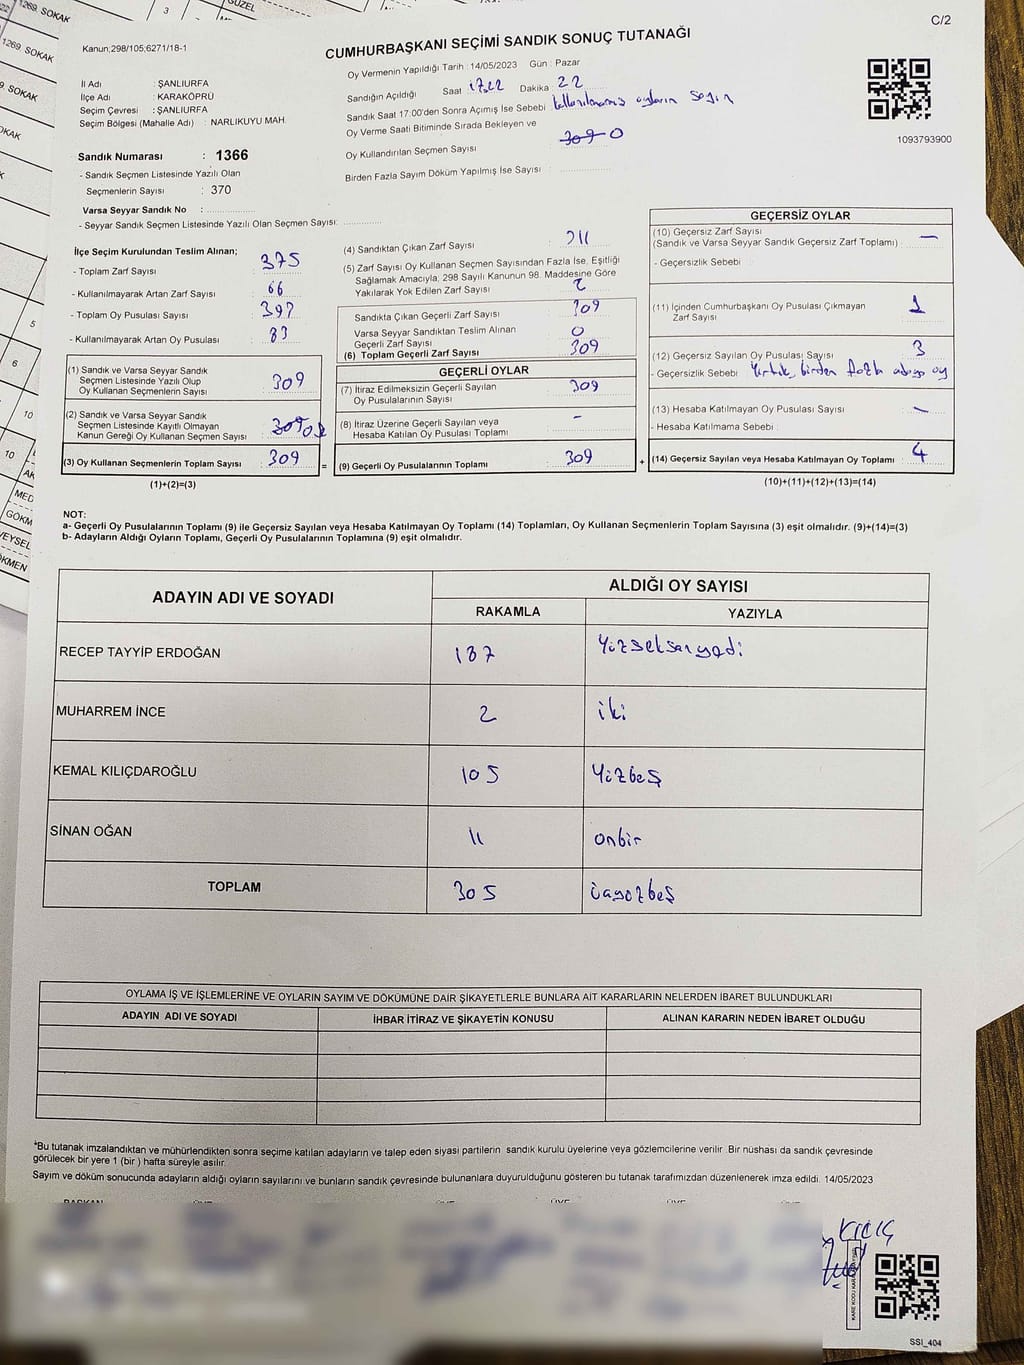 1269. SOKAK
3
GÜZEL
1269. SOKAK
5
6
10
10
MED
GÖKM
VEYSEL
C/2
Kanun;298/105;6271/18-1
CUMHURBAŞKANI SEÇİMİ SANDIK SONUÇ TUTANAĞI
İl Adı : ŞANLIURFA
İlçe Adı : KARAKÖPRÜ
Seçim Çevresi : ŞANLIURFA
Seçim Bölgesi (Mahalle Adı) : NARLIKUYU MAH.
Oy Vermenin Yapıldığı Tarih : 14/05/2023 Gün : Pazar
Sandığın Açıldığı Saat 17.22 Dakika 22
Sandık Saat 17:00'den Sonra Açımış İse Sebebi kullanılmamış oyların sayım
Oy Verme Saati Bitiminde Sırada Bekleyen ve
Oy Kullandırılan Seçmen Sayısı 309 0
Birden Fazla Sayım Döküm Yapılmış İse Sayısı :
1093793900
Sandık Numarası : 1366
- Sandık Seçmen Listesinde Yazılı Olan
Seçmenlerin Sayısı : 370
Varsa Seyyar Sandık No :
- Seyyar Sandık Seçmen Listesinde Yazılı Olan Seçmen Sayısı:
İlçe Seçim Kurulundan Teslim Alınan;
- Toplam Zarf Sayısı 375
- Kullanılmayarak Artan Zarf Sayısı 66
- Toplam Oy Pusulası Sayısı 397
- Kullanılmayarak Artan Oy Pusulası 83
(1) Sandık ve Varsa Seyyar Sandık
Seçmen Listesinde Yazılı Olup
Oy Kullanan Seçmenlerin Sayısı 309
(2) Sandık ve Varsa Seyyar Sandık
Seçmen Listesinde Kayıtlı Olmayan
Kanun Gereği Oy Kullanan Seçmen Sayısı 309 0
(3) Oy Kullanan Seçmenlerin Toplam Sayısı 309 =
(1)+(2)=(3)
(4) Sandıktan Çıkan Zarf Sayısı 311
(5) Zarf Sayısı Oy Kullanan Seçmen Sayısından Fazla İse, Eşitliği
Sağlamak Amacıyla; 298 Sayılı Kanunun 98. Maddesine Göre
Yakılarak Yok Edilen Zarf Sayısı 2
Sandıkta Çıkan Geçerli Zarf Sayısı 309
Varsa Seyyar Sandıktan Teslim Alınan
Geçerli Zarf Sayısı 0
(6) Toplam Geçerli Zarf Sayısı 309
GEÇERLİ OYLAR
(7) İtiraz Edilmeksizin Geçerli Sayılan
Oy Pusulalarının Sayısı 309
(8) İtiraz Üzerine Geçerli Sayılan veya
Hesaba Katılan Oy Pusulası Toplamı -
(9) Geçerli Oy Pusulalarının Toplamı 309 +
GEÇERSİZ OYLAR
(10) Geçersiz Zarf Sayısı
(Sandık ve Varsa Seyyar Sandık Geçersiz Zarf Toplamı) -
- Geçersizlik Sebebi :
(11) İçinden Cumhurbaşkanı Oy Pusulası Çıkmayan
Zarf Sayısı 1
(12) Geçersiz Sayılan Oy Pusulası Sayısı 3
- Geçersizlik Sebebi Yırtık, birden fazla adaya oy
(13) Hesaba Katılmayan Oy Pusulası Sayısı -
- Hesaba Katılmama Sebebi :
(14) Geçersiz Sayılan veya Hesaba Katılmayan Oy Toplamı 4
(10)+(11)+(12)+(13)=(14)
NOT:
a- Geçerli Oy Pusulalarının Toplamı (9) ile Geçersiz Sayılan veya Hesaba Katılmayan Oy Toplamı (14) Toplamları, Oy Kullanan Seçmenlerin Toplam Sayısına (3) eşit olmalıdır. (9)+(14)=(3)
b- Adayların Aldığı Oyların Toplamı, Geçerli Oy Pusulalarının Toplamına (9) eşit olmalıdır.
ADAYIN ADI VE SOYADI ALDIĞI OY SAYISI
RAKAMLA YAZIYLA
RECEP TAYYİP ERDOĞAN 187 Yüzseksenyedi
MUHARREM İNCE 2 iki
KEMAL KILIÇDAROĞLU 105 Yüzbeş
SİNAN OĞAN 11 onbir
TOPLAM 305 üçyüzbeş
OYLAMA İŞ VE İŞLEMLERİNE VE OYLARIN SAYIM VE DÖKÜMÜNE DAİR ŞİKAYETLERLE BUNLARA AİT KARARLARIN NELERDEN İBARET BULUNDUKLARI
ADAYIN ADI VE SOYADI İHBAR İTİRAZ VE ŞİKAYETİN KONUSU ALINAN KARARIN NEDEN İBARET OLDUĞU
*Bu tutanak imzalandıktan ve mühürlendikten sonra seçime katılan adayların ve talep eden siyasi partilerin sandık kurulu üyelerine veya gözlemcilerine verilir. Bir nüshası da sandık çevresinde
görülecek bir yere 1 (bir ) hafta süreyle asılır.
Sayım ve döküm sonucunda adayların aldığı oyların sayılarını ve bunların sandık çevresinde bulunanlara duyurulduğunu gösteren bu tutanak tarafımızdan düzenlenerek imza edildi. 14/05/2023
SSI_404